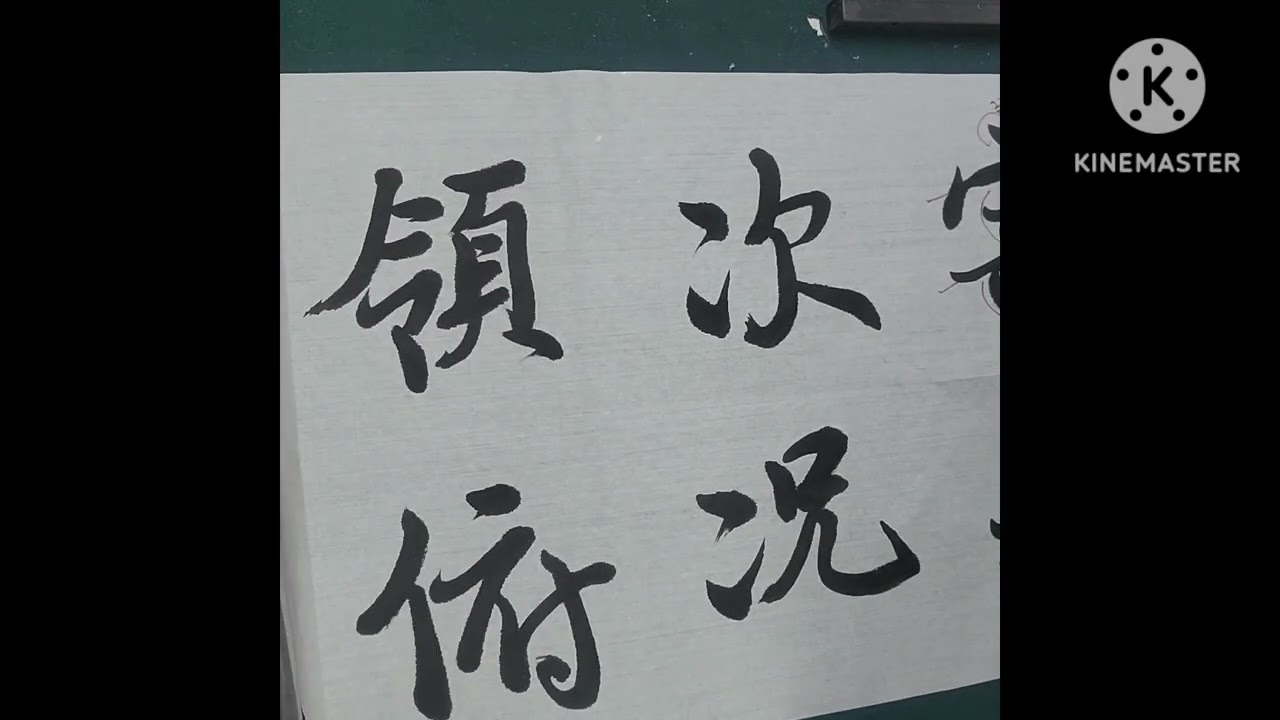 次況
領俯
KINEMASTER